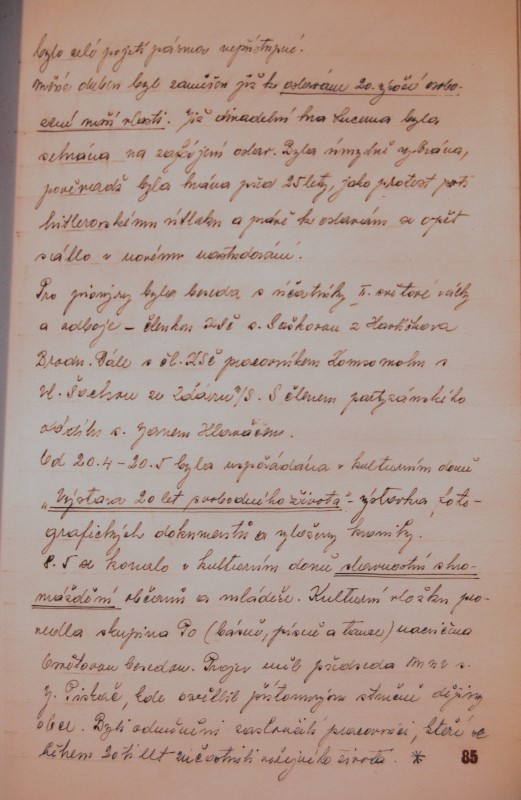 bylo celé pojetí pásma nepřístupné.
Měsíc duben byl zaměřen již k oslavám 20. výročí osvobo-
zené naší vlasti. Již divadelní hra Lucerna byla
sehrána na zahájení oslav. Byla úmyslně vybrána,
poněvadž byla hrána před 25 lety, jako protest proti
hitlerovskému útlaku a právě k oslavám a opět
v novém nastudování.
Pro pionýry byla beseda s účastníky II. světové války
a odboje – členkou KSČ s. z Havlíčkova
Brodu. Dále s čl. KSČ pracovníkem Komsomolu s
Vl. ze Žďáru n/S. S členem partyzánského
oddílu s. Janem Hlaváčem.
Od 20.4 – 20.5 byla uspořádána v kulturním domě
„Výstava 20 let svobodného života“ výstavka foto-
grafických dokumentů a vyloženy kroniky.
8.5 se konalo v kulturním domě slavnostní shro-
máždění občanů a mládeže. Kulturní vložku pro-
vedla skupina Po (básně, písně a tance) nacvičena
Osvětovou besedou. Projev měl předseda MNV s.
J. kde osvětlil přítomným stručně dějiny
obce. Byli odměněni zasloužilí pracovníci, kteří se
během 20ti let zúčastnili veřejného života. * 85